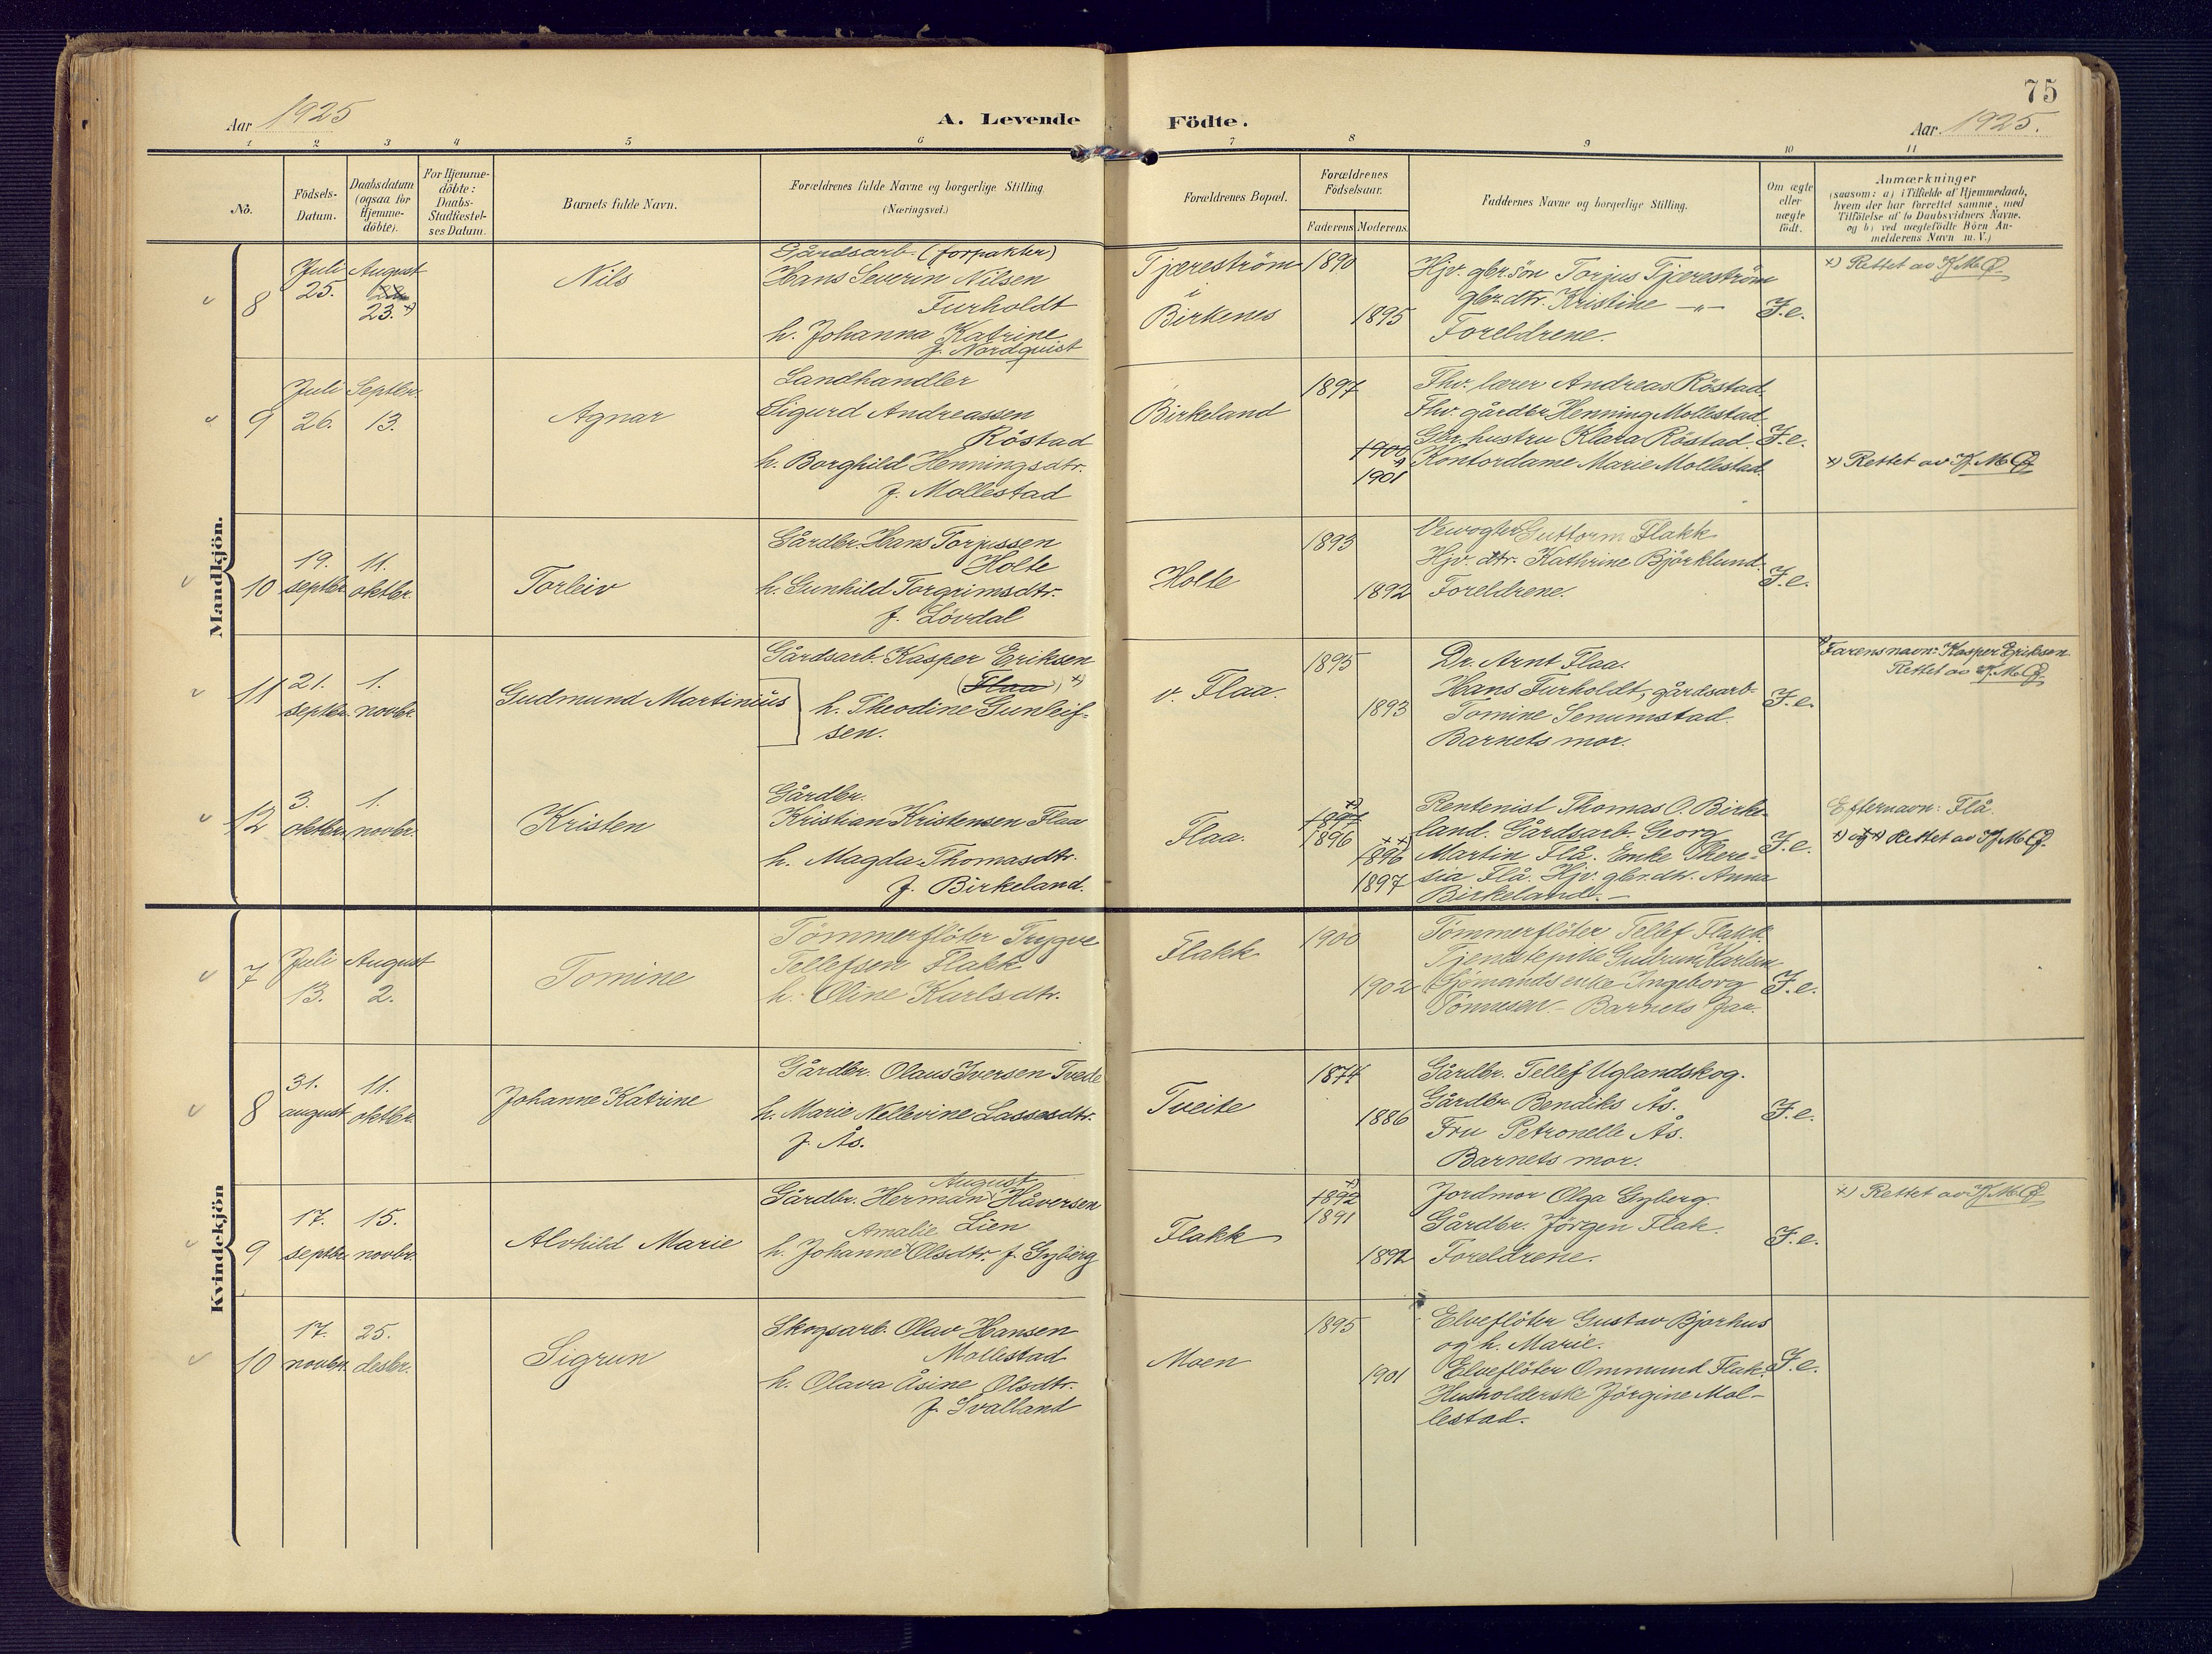 75
Aar 1925
A. Levende
Födte.
Aar 1925.
1 2 3 4 5 6 7 8 9 10 11
No.
Födsels-
Datum.
Daabsdatum
(ogsaa for
Hjemme-
döbte).
For Hjemme-
döbte:
Daabs-
Stadfæstel-
ses Datum.
Barnets fulde Navn.
Forældrenes fulde Navne og borgerlige Stilling.
(Næringsvei.)
Forældrenes Bopæl.
Forældrenes
Födselsaar.
Faderens Moderens
Faddernes Navne og borgerlige Stilling.
Om ægte
eller
uægte
födt.
Anmærkninger
(saasom: a) i Tilfælde af Hjemmedaab,
hvem der har forrettet samme, med
Tilföielse af to Daabsvidners Navne.
og b) ved uægtefödte Börn An-
melderens Navn m. V.)
Mandkjön.
8
Juli
25.
August
23. x)
Nils
Gårdsarb. (forpakter)
Hans Severin Nilsen
Furholdt
h. Johanna Katrine
f. Nordquist
Tjæreström
i
Birkenes
1890
1895
Hjv. gbr.sön Torjus Tjæreström
gbr.dtr. Kristine —"—
Foreldrene.
F.e.
x) Rettet av
9
Juli
26.
Septbr.
13.
Agnar
Landhandler
Sigurd Andreassen
Röstad
h. Borghild Henningsdtr.
f. Mollestad
Birkeland
1897
1900
1901
Fhv. lærer Andreas Röstad.
Fhv. gårdbr. Henning Mollestad.
Gbr. hustru Klara Röstad.
Kontordame Marie Mollestad.
F.e.
x) Rettet av
10
19.
septbr.
11.
oktbr.
Torleiv
Gårdbr. Hans Torjussen
Holte
h. Gunhild Torgrimsdtr.
f. Lövdal
Holte
1893
1892
Veivogter Guttorm Flakk
Hjv. dtr. Kathrine Björklund.
Foreldrene.
F.e.
11
21.
septbr.
1.
novbr.
Gudmund Martinius
Gårdsarb. Kasper Eriksen
(Flaa) x)
h. Theodine Gunleif-
sen.
v. Flaa.
1895
1893
Dr. Arnt Flaa.
Hans Furholdt, gårdsarb.
Tomine Senumstad.
Barnets mor.
F.e.
x) Farens navn: Kasper Eriksen
Rettet av
12
3.
oktbr.
1.
novbr.
Kristen
Gårdbr.
Kristian Kristensen Flaa
h. Magda Thomasdtr.
f. Birkeland.
Flaa.
x)
1897
1896
xx)
1896
1897
Rentenist Thomas O. Birke-
land. Gårdsarb. Georg
Martin Flå. Enke There-
sia Flå. Hjv. gbr.dtr. Anna
Birkeland.
F.e.
Efternavn: Flå.
x) og xx) Rettet av
Kvindekjön
7
Juli
13.
August
2.
Tomine
Tömmerflöter Trygve
Tellefsen Flakk
h. Oline Karlsdtr.
Flakk
1900
1902
Tömmerflöter Tellef Flakk.
Tjenestepike Gudrun Karlsen
Sjömandsenke Ingeborg
Tönnesen. – Barnets far.
F.e.
8
31.
august
11.
oktbr.
Johanne Katrine
Gårdbr. Olaus Iversen Tvede
h. Marie Nellevine Lassesdtr.
f. Ås.
Tveite
1874
1886
Gårdbr. Tellef Uglandskog.
Gårdbr. Bendiks Ås.
Fru Petronelle Ås.
Barnets mor.
F.e.
9
17.
septbr.
15.
novbr.
Alvhild Marie
August
Gårdbr. Herman Håversen
Amalie Lien
h. Johanne Olsdtr. f. Gyberg
Flakk
x)
1892
1891
1892
Jordmor Olga Gyberg
Gårdbr. Jörgen Flak.
Foreldrene.
F.e.
x) Rettet av
10
17.
novbr.
25.
desbr.
Sigrun
Skogsarb. Olav Hansen
Mollestad
h. Olava Åsine Olsdtr.
f. Svalland
Moen
1895
1901
Elveflöter Gustav Bjorhus
og h. Marie.
Elveflöter Ommund Flak.
Husholderske Jörgine Mol-
lestad.
F.e.